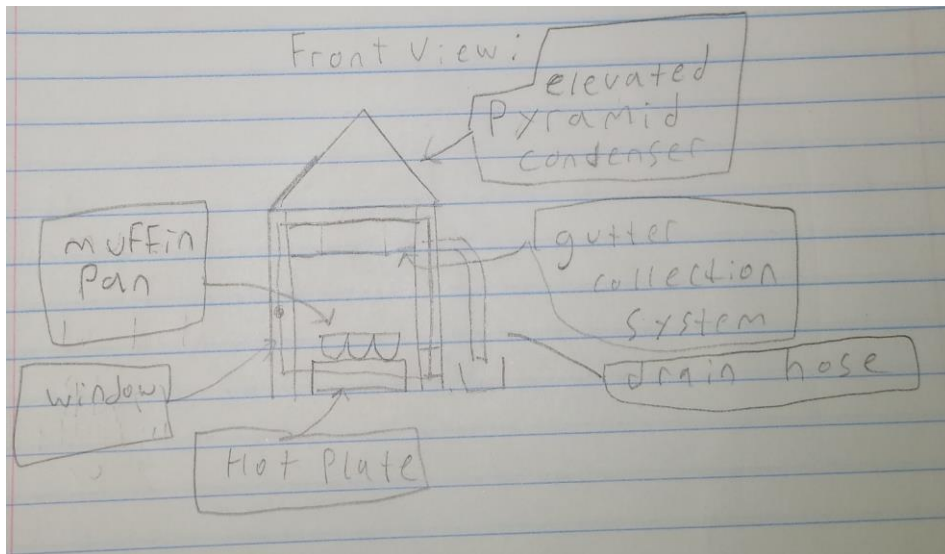 Front View:
elevated
Pyramid
condenser
muffin
Pan
gutter
collection
System
window
drain hose
Hot Plate